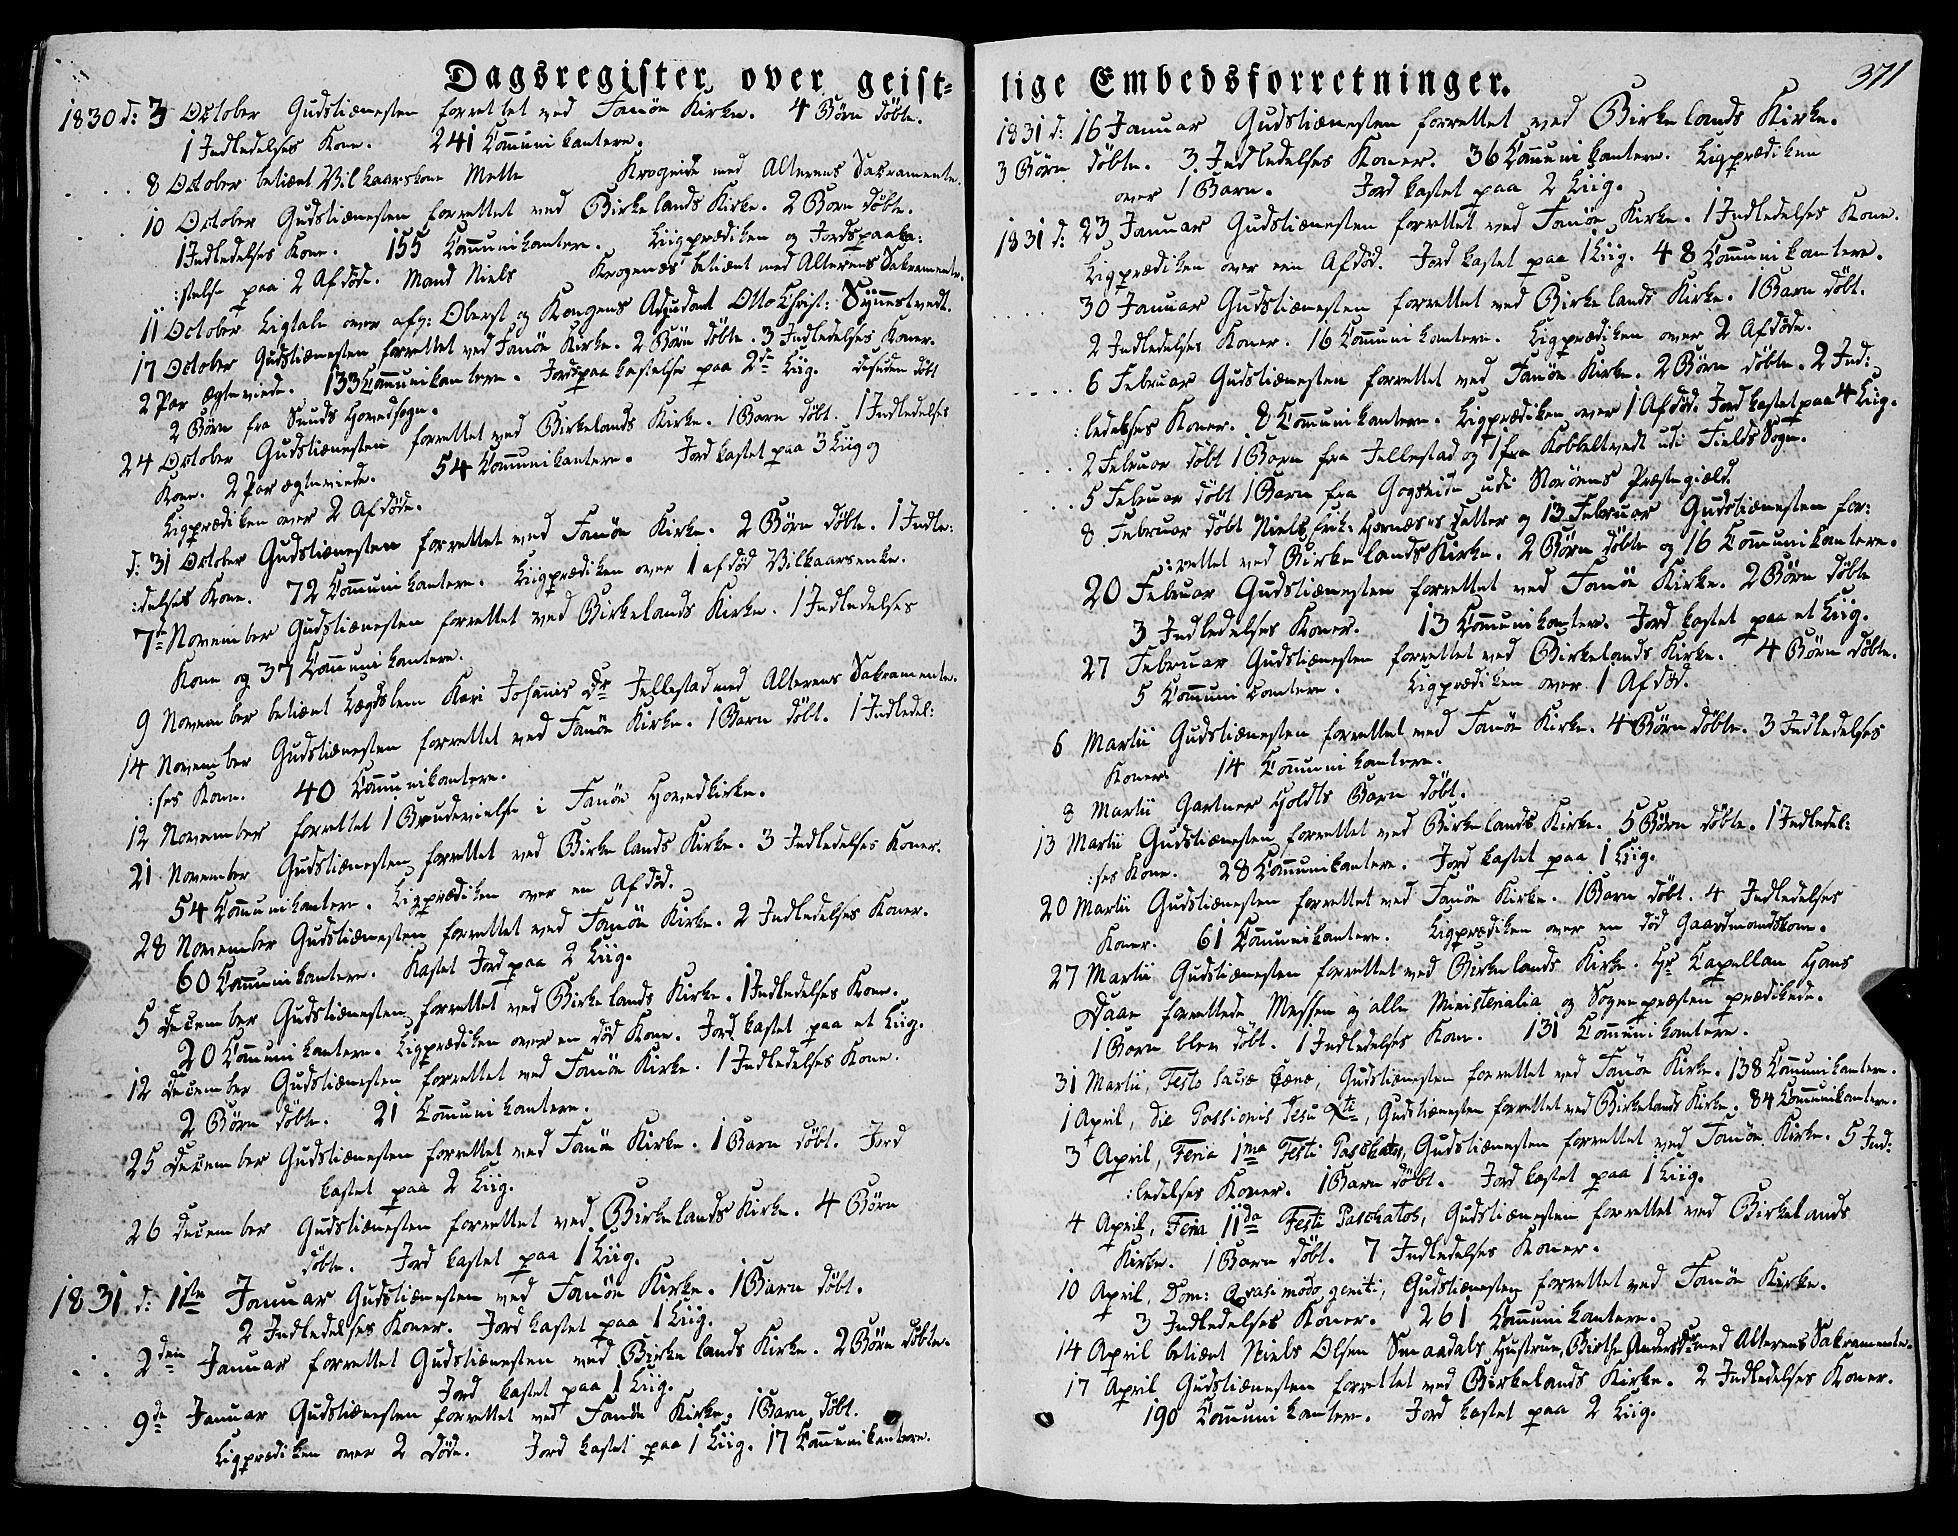 Dagsregister over geist-
1830 d: 3 October Gudstiænesten forrettet ved Fanöe Kirke. 4 Börn döbte.
1 Indledelses Kone. 241 Com̄unikantere.
8 October betiænt Vilkaarskone Mette Krogeide med Alterens Sakramente.
10 October Gudstiænesten forrettet ved Birkelands Kirke. 2 Börn döbte.
1 Indledelses Kone. 155 Com̄unikantere. Liigprædiken og Jordspaaka:
:stelse paa 2 Afdöde. Mand Niels Krogenæs betiænt med Alterens Sakramente.
11 October Ligtale over afg: Oberst og Kongens Adjudant Otto Christ: Synnestvedt.
17 October Gudstiænesten forrettet ved Fanöe Kirke. 2 Börn döbte. 3 Indledelses Koner.
2 Par ægteviede. 133 Com̄unikantere. Jordspaakastelse paa 2de Liig. desuden döbt
2 Börn fra Sunds Hovedsogn.
24 October Gudstiænesten forrettet ved Birkelands Kirke. 1 Barn döbt. 1 Indledelses
Kone. 2 Par ægteviede. 54 Com̄unikantere. Jord kastet paa 3 Liig og
Ligprædiken over 2 Afdöde.
d: 31 October Gudstiænesten forrettet ved Fanöe Kirke. 2 Börn döbte. 1 Indle:
:delses Kone. 72 Com̄unikantere. Liigprædiken over 1 afdöd Vilkaarsenke.
7de November Gudstiænesten forrettet ved Birkelands Kirke. 1 Indledelses
Kone og 37 Com̄unikantere.
9 November betiænt Lægdslem Kari Johanis Dr Jellestad med Alterens Sakramente.
14 November Gudstiænesten forrettet ved Fanöe Kirke. 1 Barn döbt. 1 Indledel:
:ses Kone. 40 Com̄unikantere.
12 November forrettet 1 Brudevielse i Fanöe Hovedkirke.
21 November Gudstiænesten forrettet ved Birkelands Kirke. 3 Indledelses Koner.
54 Com̄unikantere. Ligprædiken over en Afdöd.
28 November Gudstiænesten forrettet ved Fanöe Kirke. 2 Indledelses Koner.
60 Com̄unikantere. Kastet Jord paa 2 Liig.
5 December Gudstiænesten forrettet ved Birkelands Kirke. 1 Indledelses Kone.
20 Com̄unikantere. Ligprædiken over en död Kone. Jord kastet paa et Liig.
12 December Gudstiænesten forrettet ved Fanöe Kirke. 1 Indledelses Kone.
2 Börn döbte. 21 Com̄unikantere.
25 December Gudstiænesten forrettet ved Fanöe Kirke. 1 Barn döbt. Jord
kastet paa 2 Liig.
26 December Gudstiænesten forrettet ved Birkelands Kirke. 4 Börn
döbte. Jord kastet paa 1 Liig.
1831 d: 1ste Januar Gudstiænesten ved Fanöe Kirke. 1 Barn döbt.
2 Indledelses Koner. Jord kastet paa 1 Liig.
2den Januar forrettet Gudstiænesten ved Birkelands Kirke. 2 Börn döbte.
Jord kastet paa 1 Liig.
9de Januar Gudstiænesten forrettet ved Fanöe Kirke. 1 Barn döbt.
Ligprædiken over 2 döde. Jord kastet paa 1 Liig. 17 Com̄unikantere.
lige Embedsforretninger.
371
1831 d: 16 Januar Gudstiænesten forrettet ved Birkelands Kirke.
3 Börn döbte. 3 Indledelses Koner. 36 Com̄unikantere. Ligprædiken
over 1 Barn. Jord kastet paa 2 Liig.
1831 d: 23 Januar Gudstiænesten forrettet ved Fanöe Kirke. 1 Indledelses Kone.
Ligprædiken over een Afdöd. Jord kastet paa 1 Liig. 48 Com̄unikantere.
30 Januar Gudstiænesten forrettet ved Birkelands Kirke. 1 Barn döbt.
2 Indledelses Koner. 16 Com̄unikantere. Ligprædiken over 2 Afdöde.
6 Februar Gudstiænesten forrettet ved Fanöe Kirke. 2 Börn döbte. 2 Ind:
:ledelses Koner. 8 Com̄unikantere. Ligprædiken over 1 Afdöd. Jord kastet paa 4 Liig.
2 Februar döbt 1 Barn fra Jellestad og 1 fra Kobbeltvedt udi Fields Sogn.
5 Februar döbt 1 Barn fra udi Præstegield.
8 Februar döbt Niels Erik: Hornæses Datter og 13 Februar Gudstiænesten for:
:rettet ved Birkelands Kirke. 2 Börn döbte og 16 Com̄unikantere.
20 Februar Gudstiænesten forrettet ved Fanöe Kirke. 2 Börn döbte
3 Indledelses Koner. 13 Com̄unikantere. Jord kastet paa et Liig.
27 Februar Gudstiænesten forrettet ved Birkelands Kirke. 4 Börn döbte.
5 Com̄unicantere. Ligprædiken over 1 Afdöd.
6 Martii Gudstiænesten forrettet ved Fanöe Kirke. 4 Börn döbte. 3 Indledelses
Koner. 14 Com̄unikantere.
8 Martii Gartner Holdts Barn döbt.
13 Martii Gudstiænesten forrettet ved Birkelands Kirke. 5 Börn döbte. 1 Indledel:
:ses Kone. 28 Com̄unikantere. Jord kastet paa 1 Liig.
20 Martii Gudstiænesten forrettet ved Fanöe Kirke. 1 Barn döbt. 4 Indledelses
Koner. 61 Com̄unikantere. Ligprædiken over en död Gaardmandskone.
27 Martii Gudstiænesten forrettet ved Birkelands Kirke. Hr Capellan Hans
Daae forrettede Messen og alle Ministerialia og Sognepræsten prædikede.
1 Barn blev döbt. 1 Indledelses Kone. 131 Com̄unikantere.
31 Martii, Festo sacræ Cænæ, Gudstiænesten forrettet ved Fanöe Kirke. 138 Com̄unikantere.
1 April, die Passionis Jesu Xti, Gudstiænesten forrettet ved Birkelands Kirke. 84 Com̄unikantere.
3 April, Feria 1ma Festi Paschatos, Gudstiænesten forrettet ved Fanöe Kirke. 5 Ind:
:ledelses Koner. 1 Barn döbt. Jord kastet paa 1 Liig.
4 April, Feria IIda Festi Paschatos, Gudstiænesten forrettet ved Birkelands
Kirke. 1 Barn döbt. 7 Indledelses Koner.
10 April, Dom: Qvasimodo geniti, Gudstiænesten forrettet ved Fanöe Kirke.
3 Indledelses Koner. 261 Com̄unikantere.
14 April betiænt Niels Olsen Smaadals Hustrue, Birthe Anders Dr med Alterens Sakramente.
17 April Gudstiænesten forrettet ved Birkelands Kirke. 2 Indledelses Koner.
190 Com̄unikantere. Jord kastet paa 2 Liig.